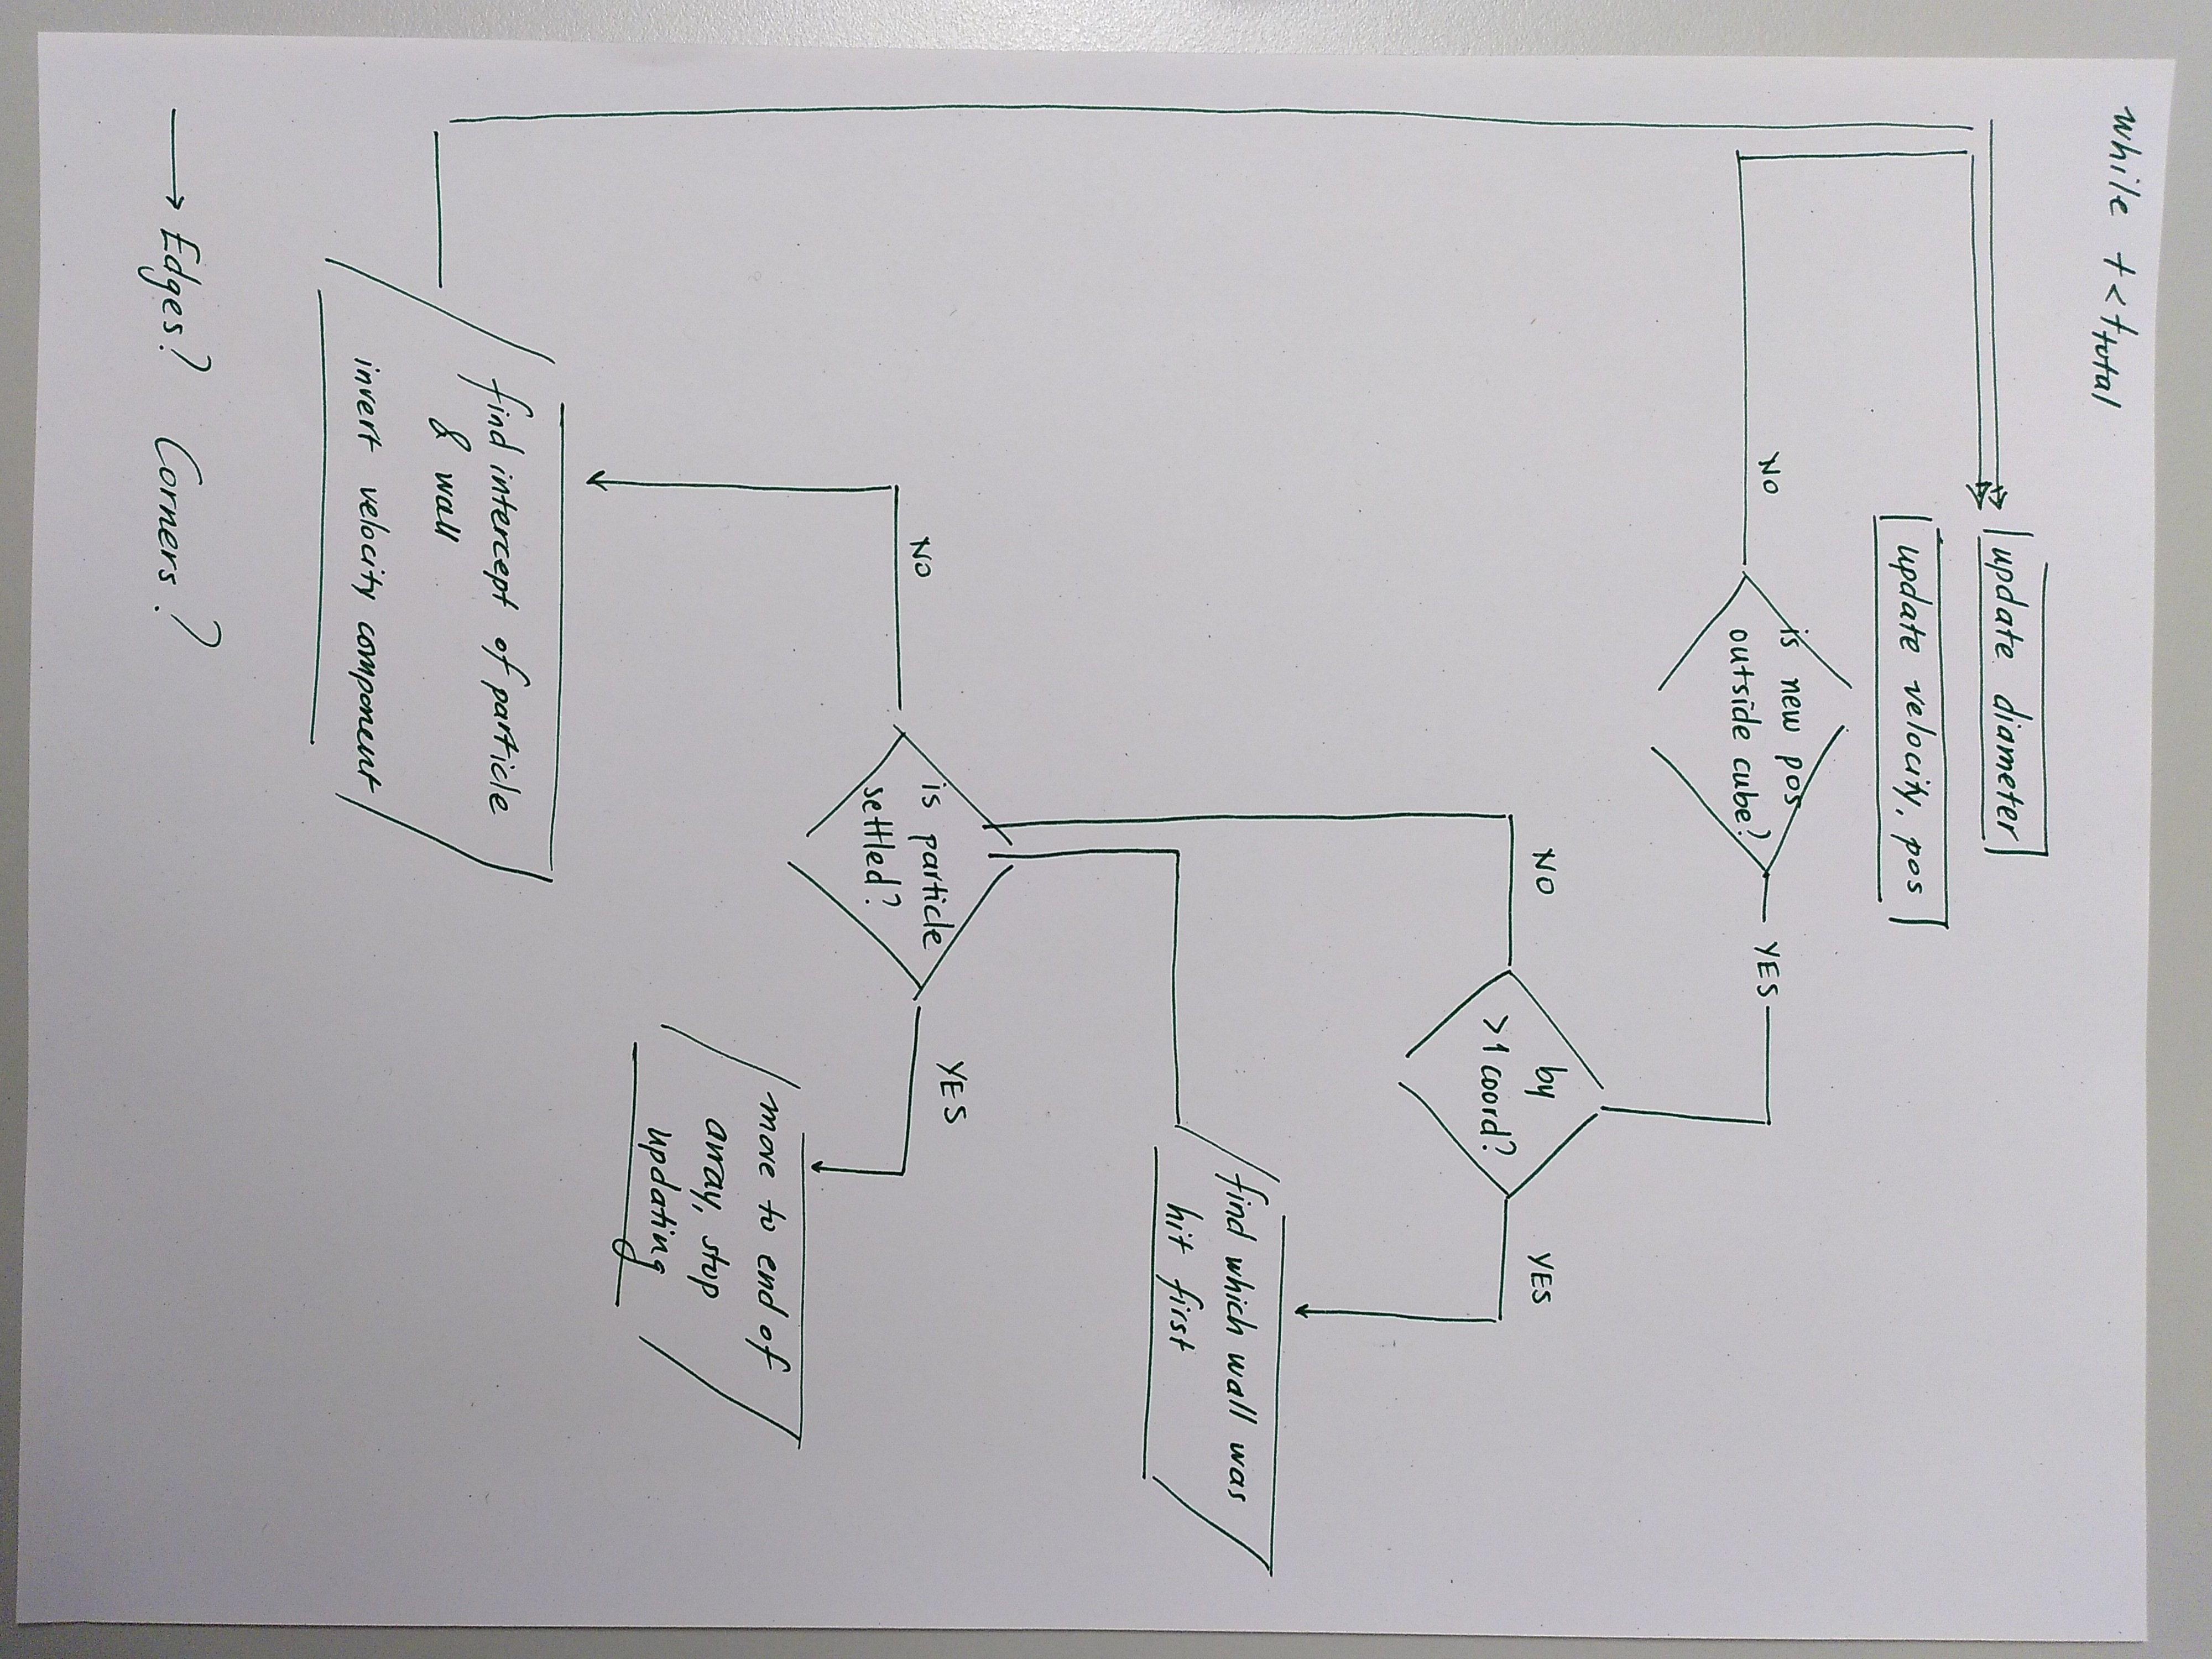 while t < t total
update diameter
update velocity, pos
is new pos
outside cube?
NO
YES
by
>1 coord?
NO
YES
find which wall was
hit first
is particle
settled?
NO
YES
move to end of
array, stop
updating
find intercept of particle
& wall
invert velocity component
→ Edges? Corners?